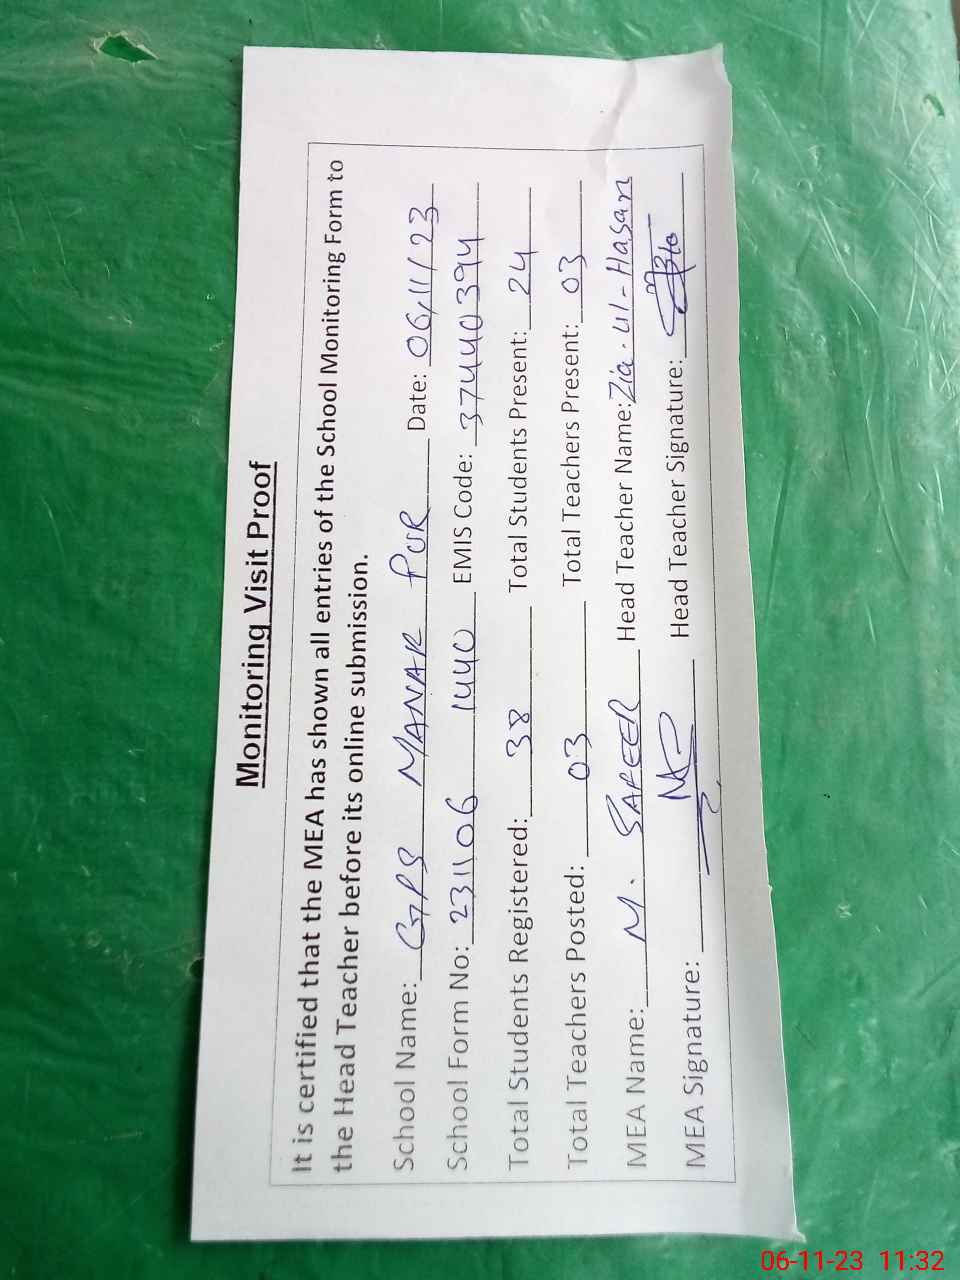 Monitoring Visit Proof
It is certified that the MEA has shown all entries of the School Monitoring Form to
the Head Teacher before its online submission.
School Name: GPS MANAK PUR Date: 06/11/23
School Form No: 231106 1440 EMIS Code: 37440394
Total Students Registered: 38 Total Students Present: 24
Total Teachers Posted: 03 Total Teachers Present: 03
MEA Name: M. SAFEER Head Teacher Name: Zia-ul-Hasan
MEA Signature: Head Teacher Signature:
06-11-23 11:32